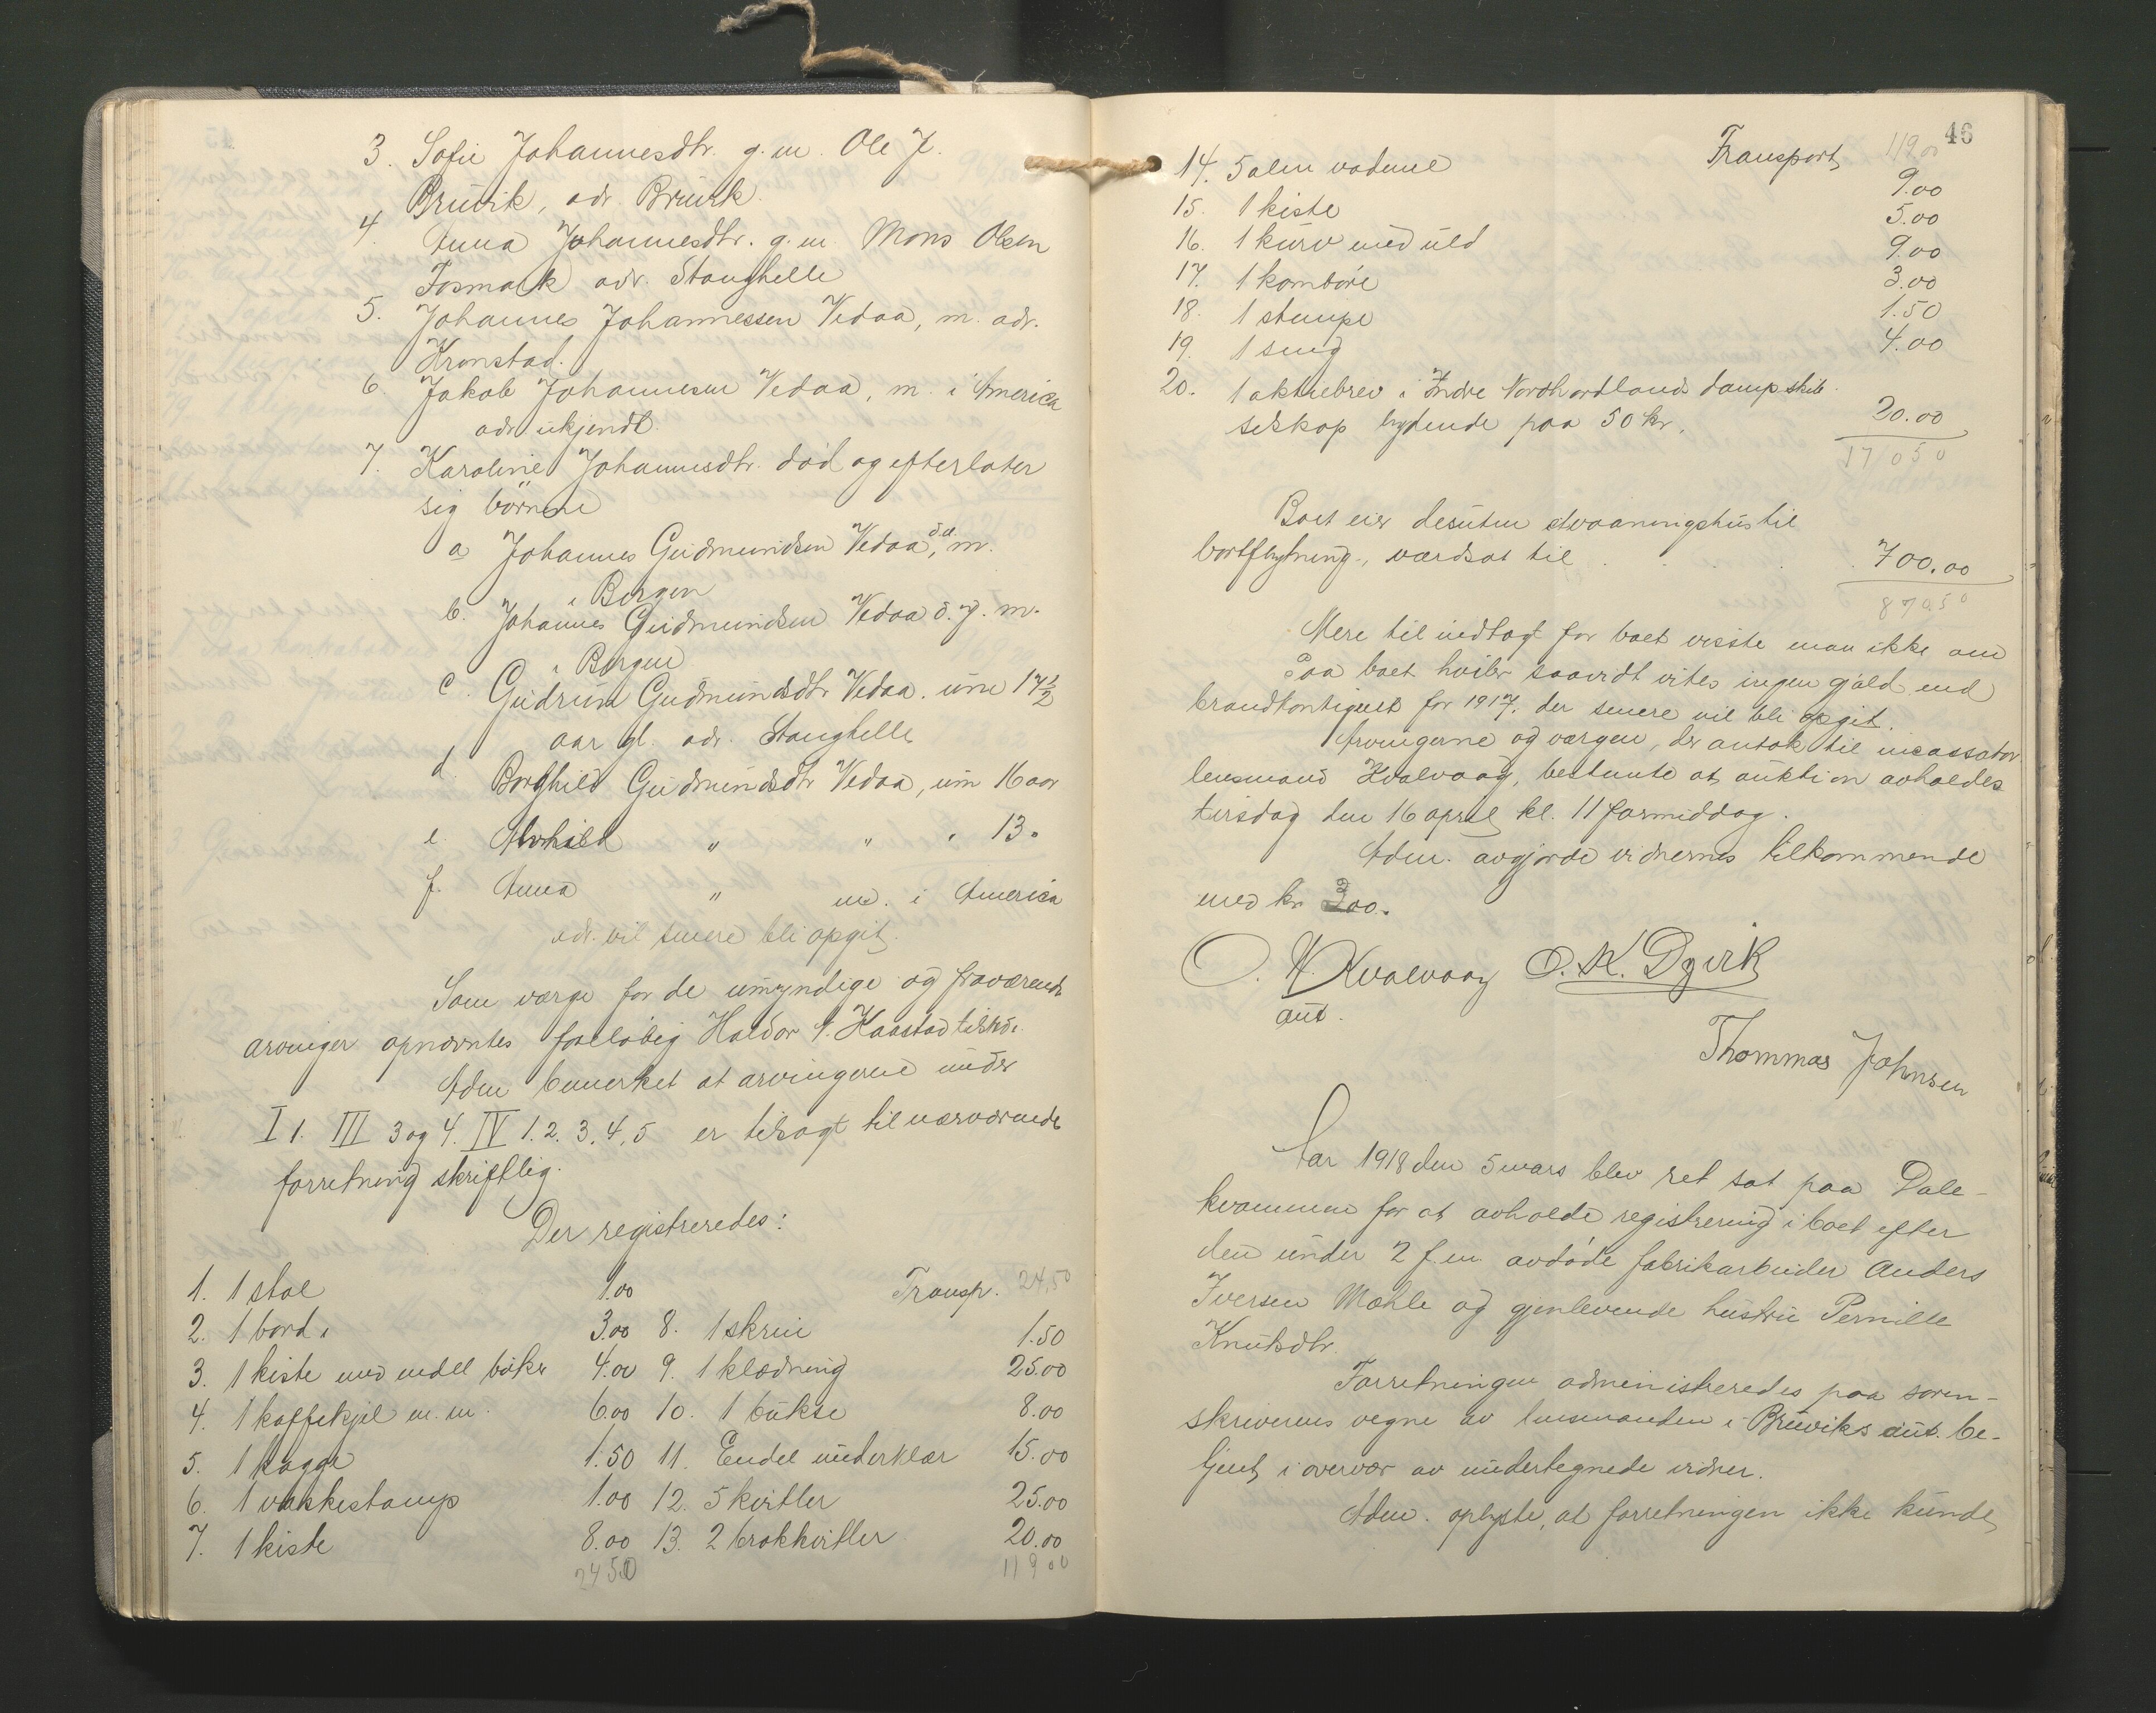 3. Sofie Johannesdtr. g.m. Ole J.
Bruvik, adr. Bruvik.
4. Anna Johannesdtr. g.m. Mons Olsen
Fosmark adr. Stanghelle
5. Johannes Johannessen Vedaa, m. adr.
Kronstad.
6. Jakob Johannesen Vedaa, m. i America
adr. ukjendt.
7. Karoline Johannesdtr. död og efterlater
sig börnene
a Johannes Gudmundsen Vedaa d.e., m.
i Bergen
b. Johannes Gudmundsen Vedaa d.y. m.
i Bergen
c. Gudrun Gudmundsdtr Vedaa. um 17 1/2
aar gl. adr. Stanghelle
d. Borghild Gudmundsdtr Vedaa, um 16 aar
e. Alvhild " " " 13 "
f. Anna " m. i America
adr. vil senere bli opgit.
Som værge for de umyndige og fraværende
arvinger opnævntes foreløbig Haldor Kaastad
Adm bemerket at arvingerne under
I 1. III 3 og 4. IV 1. 2. 3. 4, 5 er tilsagt til nærværende
forretning skriftlig.
Der registreredes:
1. 1 stol 1.00
2. 1 bord 3.00
3. 1 kiste med endel böker 4.00
4. 1 kaffekjel m.m. 6.00
5. 1 kagge 1.50
6. 1 vaskestamp 1.00
7. 1 kiste 8.00
24 50
Transp. 24,50
8. 1 skrin 1.50
9. 1 klædning 25.00
10. 1 bukse 8.00
11. Endel underklær 15.00
12. 5 kvitler 25.00
13. 2 brokkvitler 20.00
119 00
46
Transport 119 00
14. 5 alen vadmel 9.00
15. 1 kiste 5.00
16. 1 kurv med uld 9.00
17. 1 komtöre 3.00
18. 1 stampe 1.50
19. 1 seng 4.00
20. 1 aktiebrev i Indre Nordhordland dampskib-
selskap lydende paa 50 kr. 20.00
170 50
Boet eier desuten stvaaningshus til
bortflytning, værdsat til . . . 700.00
870 50
Mere til indtagt for boet visste man ikke om
Paa boet hviler saavidt vites ingen gjæld end
brandkontigent for 1917. der senere vil bli opgit.
Arvingerne og værgen, der antok til incassator
lensmand Kvalvaag, bestemte at auktion avholdes
tirsdag den 16 april kl. 11 formiddag.
Adm. avgjorde vidnernes tilkommende
med kr
O. Kvalvaag O. K. Dyvik
aut.
Thommas Johnsen
Aar 1918 den 5 mars blev ret sat paa Dale-
kvammen for at avholde registrering i boet efter
den under 2 f.m. avdöde fabrikarbeider Anders
Iversen Mæhle og gjenlevende hustru Pernille
Knutsdtr.
Forretningen administreredes paa soren-
skriverens vegne av lensmanden i Bruviks aut. be-
tjent, i overvær av undertegnede vidner.
Adm. oplyste, at forretningen ikke kunde